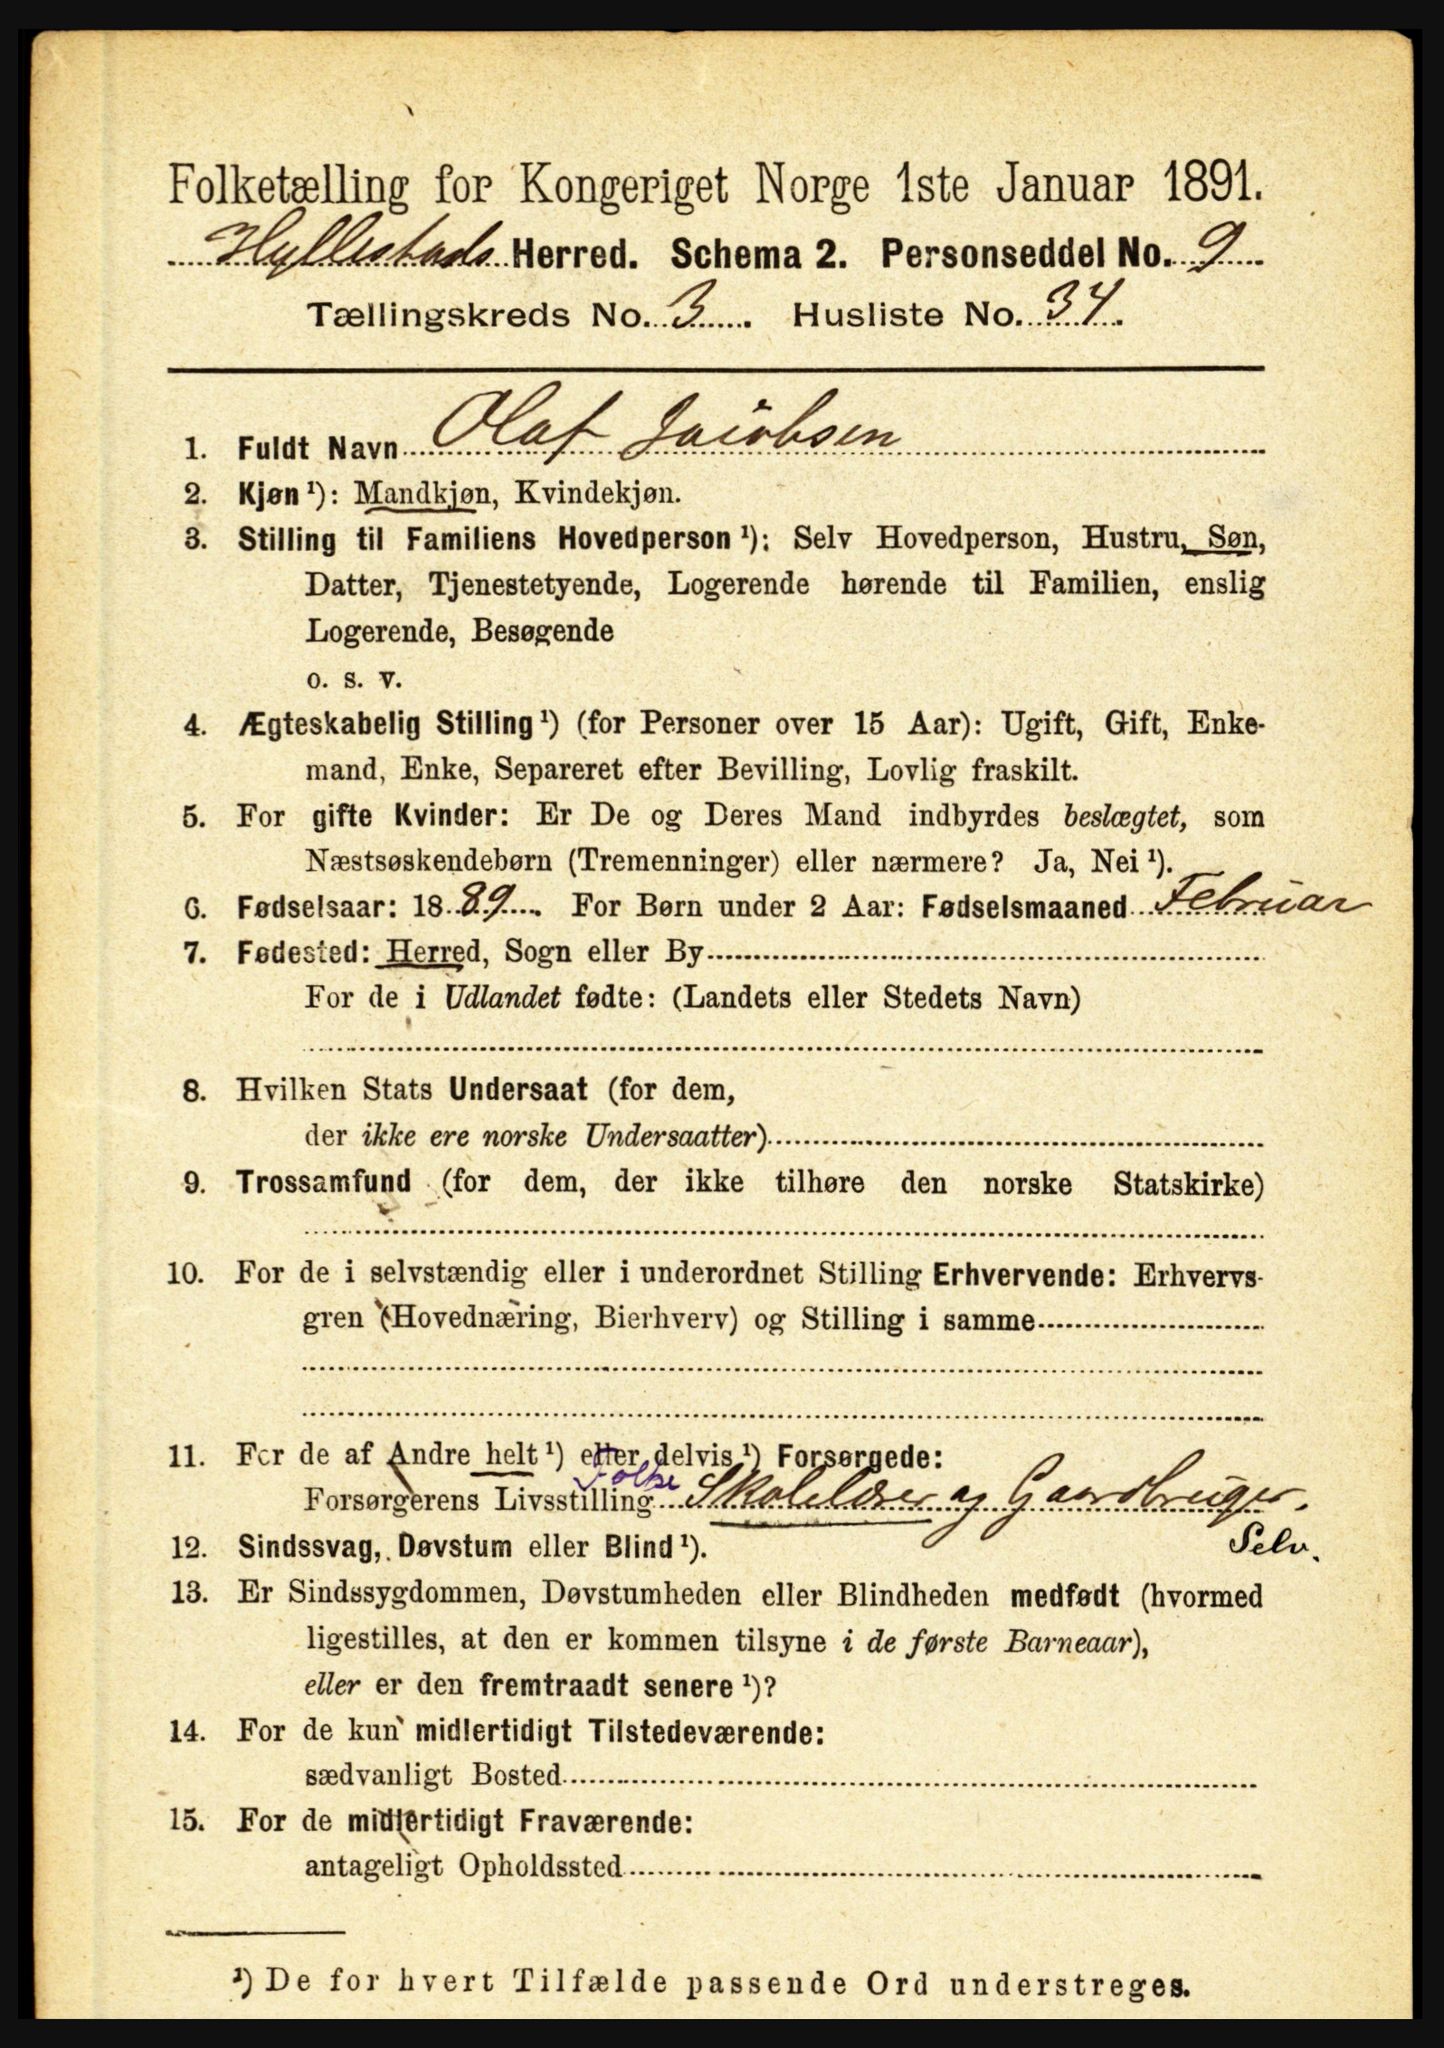 Folketælling for Kongeriget Norge 1ste Januar 1891.
Hyllestads Herred. Schema 2. Personseddel No. 9
Tællingskreds No. 3. Husliste No. 34.
1. Fuldt Navn Olaf Jacobsen
2. Kjøn ¹): Mandkjøn, Kvindekjøn.
3. Stilling til Familiens Hovedperson ¹): Selv Hovedperson, Hustru, Søn,
Datter, Tjenestetyende, Logerende hørende til Familien, enslig
Logerende, Besøgende
o. s. v.
4. Ægteskabelig Stilling ¹) (for Personer over 15 Aar): Ugift, Gift, Enke-
mand, Enke, Separeret efter Bevilling, Lovlig fraskilt.
5. For gifte Kvinder: Er De og Deres Mand indbyrdes beslægtet, som
Næstsøskendebørn (Tremenninger) eller nærmere? Ja, Nei ¹).
6. Fødselsaar: 1889. For Børn under 2 Aar: Fødselsmaaned Februar
7. Fødested: Herred, Sogn eller By
For de i Udlandet fødte: (Landets eller Stedets Navn)
8. Hvilken Stats Undersaat (for dem,
der ikke ere norske Undersaatter)
9. Trossamfund (for dem, der ikke tilhøre den norske Statskirke)
10. For de i selvstændig eller i underordnet Stilling Erhvervende: Erhvervs-
gren (Hovednæring, Bierhverv) og Stilling i samme
11. For de af Andre helt ¹) eller delvis ¹) Forsørgede:
Folke
Forsørgerens Livsstilling Skolelærer og Gaardbruger.
12. Sindssvag, Døvstum eller Blind ¹). Selv.
13. Er Sindssygdommen, Døvstumheden eller Blindheden medfødt (hvormed
ligestilles, at den er kommen tilsyne i de første Barneaar),
eller er den fremtraadt senere ¹)?
14. For de kun midlertidigt Tilstedeværende:
sædvanligt Bosted
15. For de midlertidigt Fraværende:
antageligt Opholdssted
¹) De for hvert Tilfælde passende Ord understreges.